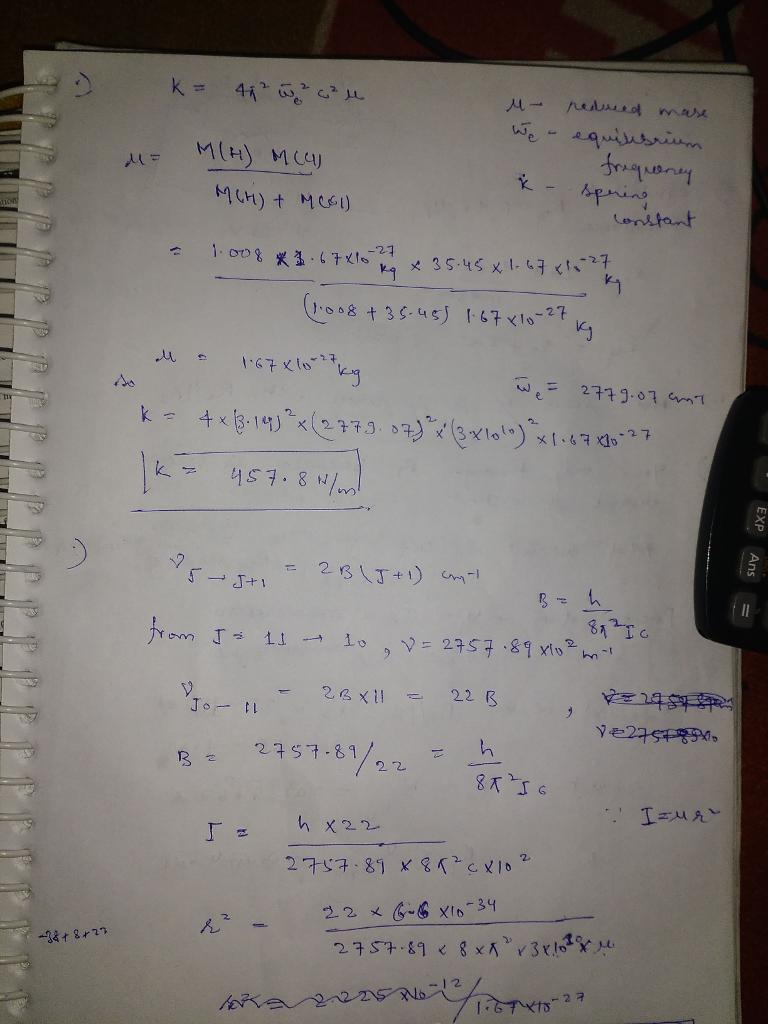 •) K = 4π² ω̄e² c² μ
μ → reduced mass
ω̄e - equilibrium
frequency
k - spring
constant
μ = M(H) M(Cl)
M(H) + M(Cl)
= 1.008 × 1.67×10⁻²⁷ kg × 35.45 × 1.67 × 10⁻²⁷ kg
(1.008 + 35.45) 1.67 × 10⁻²⁷ kg
μ = 1.67 × 10⁻²⁷ kg
so
ω̄e = 2779.07 cm⁻¹
k = 4 × (3.14)² × (2779.07)² × (3×10¹⁰)² × 1.67 × 10⁻²⁷
K = 457.8 N/m
•) ν J → J+1 = 2B(J+1) cm⁻¹
B = h
8π² I c
from J = 11 → 10 , ν = 2757.89 × 10² m⁻¹
ν J0 – 11 = 2B × 11 = 22 B ,
B = 2757.89/22 = h
8π² I c
I = h × 22
2757.89 × 8π² c × 10²
∵ I = μr²
r² = 22 × 6.6 × 10⁻³⁴
2757.89 × 8 × π² × 3×10¹⁰ × μ
-38+8+27
EXP
Ans
=